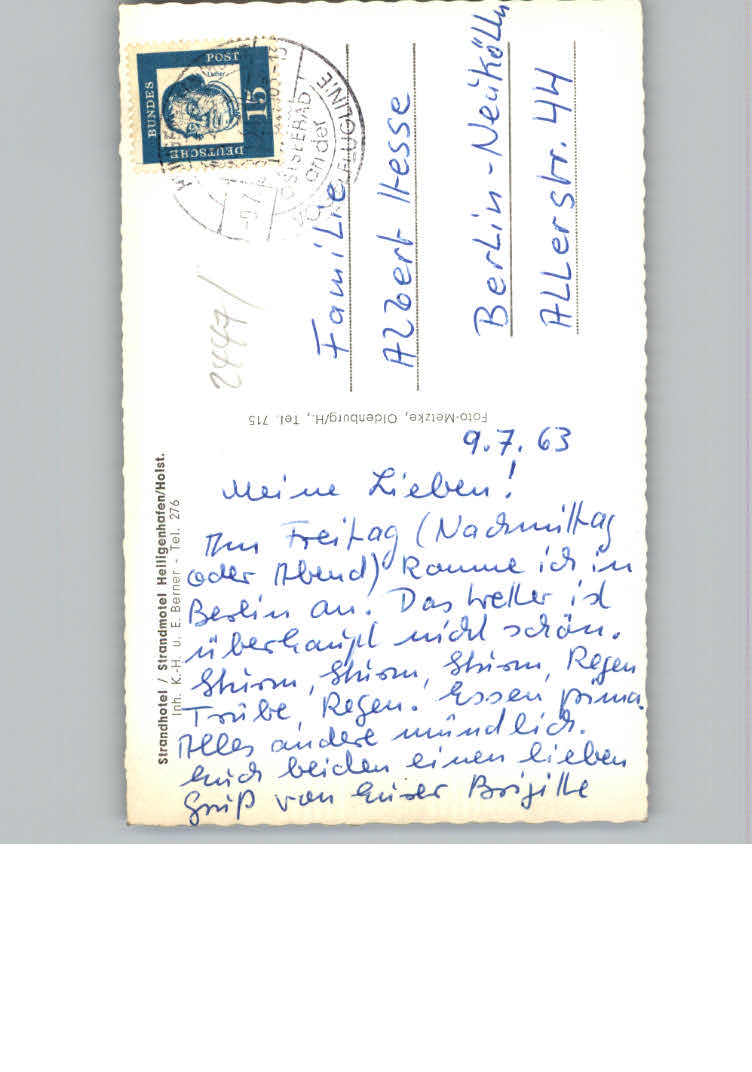 DEUTSCHE
BUNDES
POST
15
Luther
OSTSEEBAD
an der
VOGELFLUGLINIE
-9.7.
2447/
Familie
Albert Hesse
Berlin-Neukölln
Allerstr. 44
Foto-Metzke, Oldenburg/H., Tel. 715
Strandhotel / Strandmotel Heiligenhafen/Holst.
Inh. K.-H. u. E. Berner - Tel. 276
9.7.63
Meine Lieben!
Am Freitag (Nachmittag
oder Abend) komme ich in
Berlin an. Das Wetter ist
überhaupt nicht schön.
Sturm, Sturm, Sturm, Regen
Trübe, Regen. Essen prima.
Alles andere mündlich.
Euch beiden einen lieben
Gruß von Eurer Brigitte